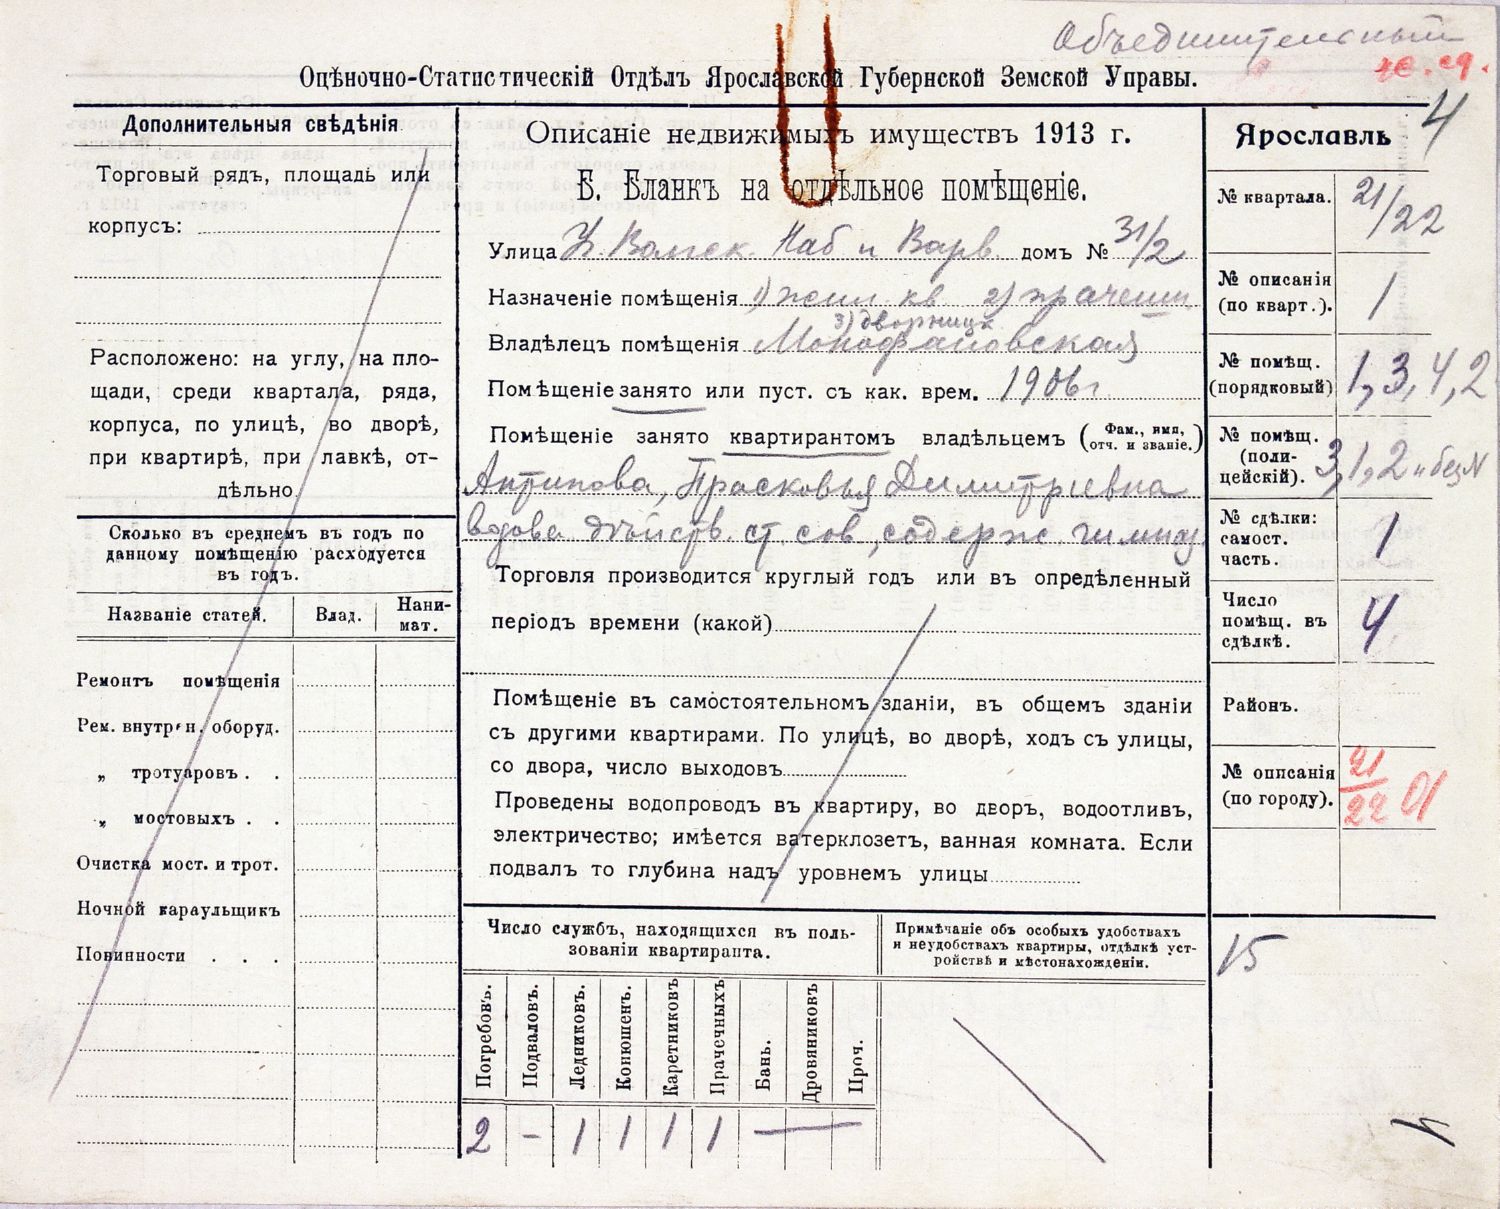 Объединительный
Оцѣночно-Статистическій Отдѣлъ Ярославской Губернской Земской Управы.
4
Дополнительныя свѣдѣнія
Торговый рядъ, площадь или
корпусъ:
Расположено: на углу, на пло-
щади, среди квартала, ряда,
корпуса, по улицѣ, во дворѣ,
при квартирѣ, при лавкѣ, от-
дѣльно.
Сколько въ среднемъ въ годъ по
данному помѣщенію расходуется
въ годъ.
Названіе статей. Влад. Нани-
мат.
Ремонтъ помѣщенія
Рем. внутрен. оборуд.
„ тротуаровъ . .
„ мостовыхъ . .
Очистка мост. и трот.
Ночной караульщикъ
Повинности . . .
Описаніе недвижимыхъ имуществъ 1913 г.
Б. Бланкъ на отдѣльное помѣщеніе.
Улица Волжск. Наб и Варв. домъ № 31/2
Назначеніе помѣщенія 1) жил. кв 2) прачешн
3) дворницк
Владѣлецъ помѣщенія
Помѣщеніе занято или пуст. съ как. врем. 1906 г.
Помѣщеніе занято квартирантомъ владѣльцемъ (Фам., имя,
отч. и званіе.)
Антипова, Прасковья Димитріевна
вдова дѣйств. ст. сов., содерж. гимназ.
Торговля производится круглый годъ или въ опредѣленный
періодъ времени (какой)
Помѣщеніе въ самостоятельномъ зданіи, въ общемъ зданіи
съ другими квартирами. По улицѣ, во дворѣ, ходъ съ улицы,
со двора, число выходовъ
Проведены водопроводъ въ квартиру, во дворъ, водоотливъ,
электричество; имѣется ватерклозетъ, ванная комната. Если
подвалъ то глубина надъ уровнемъ улицы
Число службъ, находящихся въ поль-
зованіи квартиранта.
Погребовъ. Подваловъ. Ледниковъ. Конюшенъ. Каретниковъ Прачечныхъ Бань. Дровяниковъ Проч.
2 – 1 1 1 1 —
Примѣчаніе объ особыхъ удобствахъ
и неудобствахъ квартиры, отдѣлкѣ уст-
ройствѣ и мѣстонахожденіи.
Ярославль
№ квартала. 21/22
№ описанія
(по кварт.). 1
№ помѣщ.
(порядковый) 1, 3, 4, 2
№ помѣщ.
(поли-
цейскій). 3, 1, 2 и без №
№ сдѣлки:
самост.
часть. 1
Число
помѣщ. въ
сдѣлкѣ. 4
Районъ.
№ описанія
(по городу). 21/22 01
15